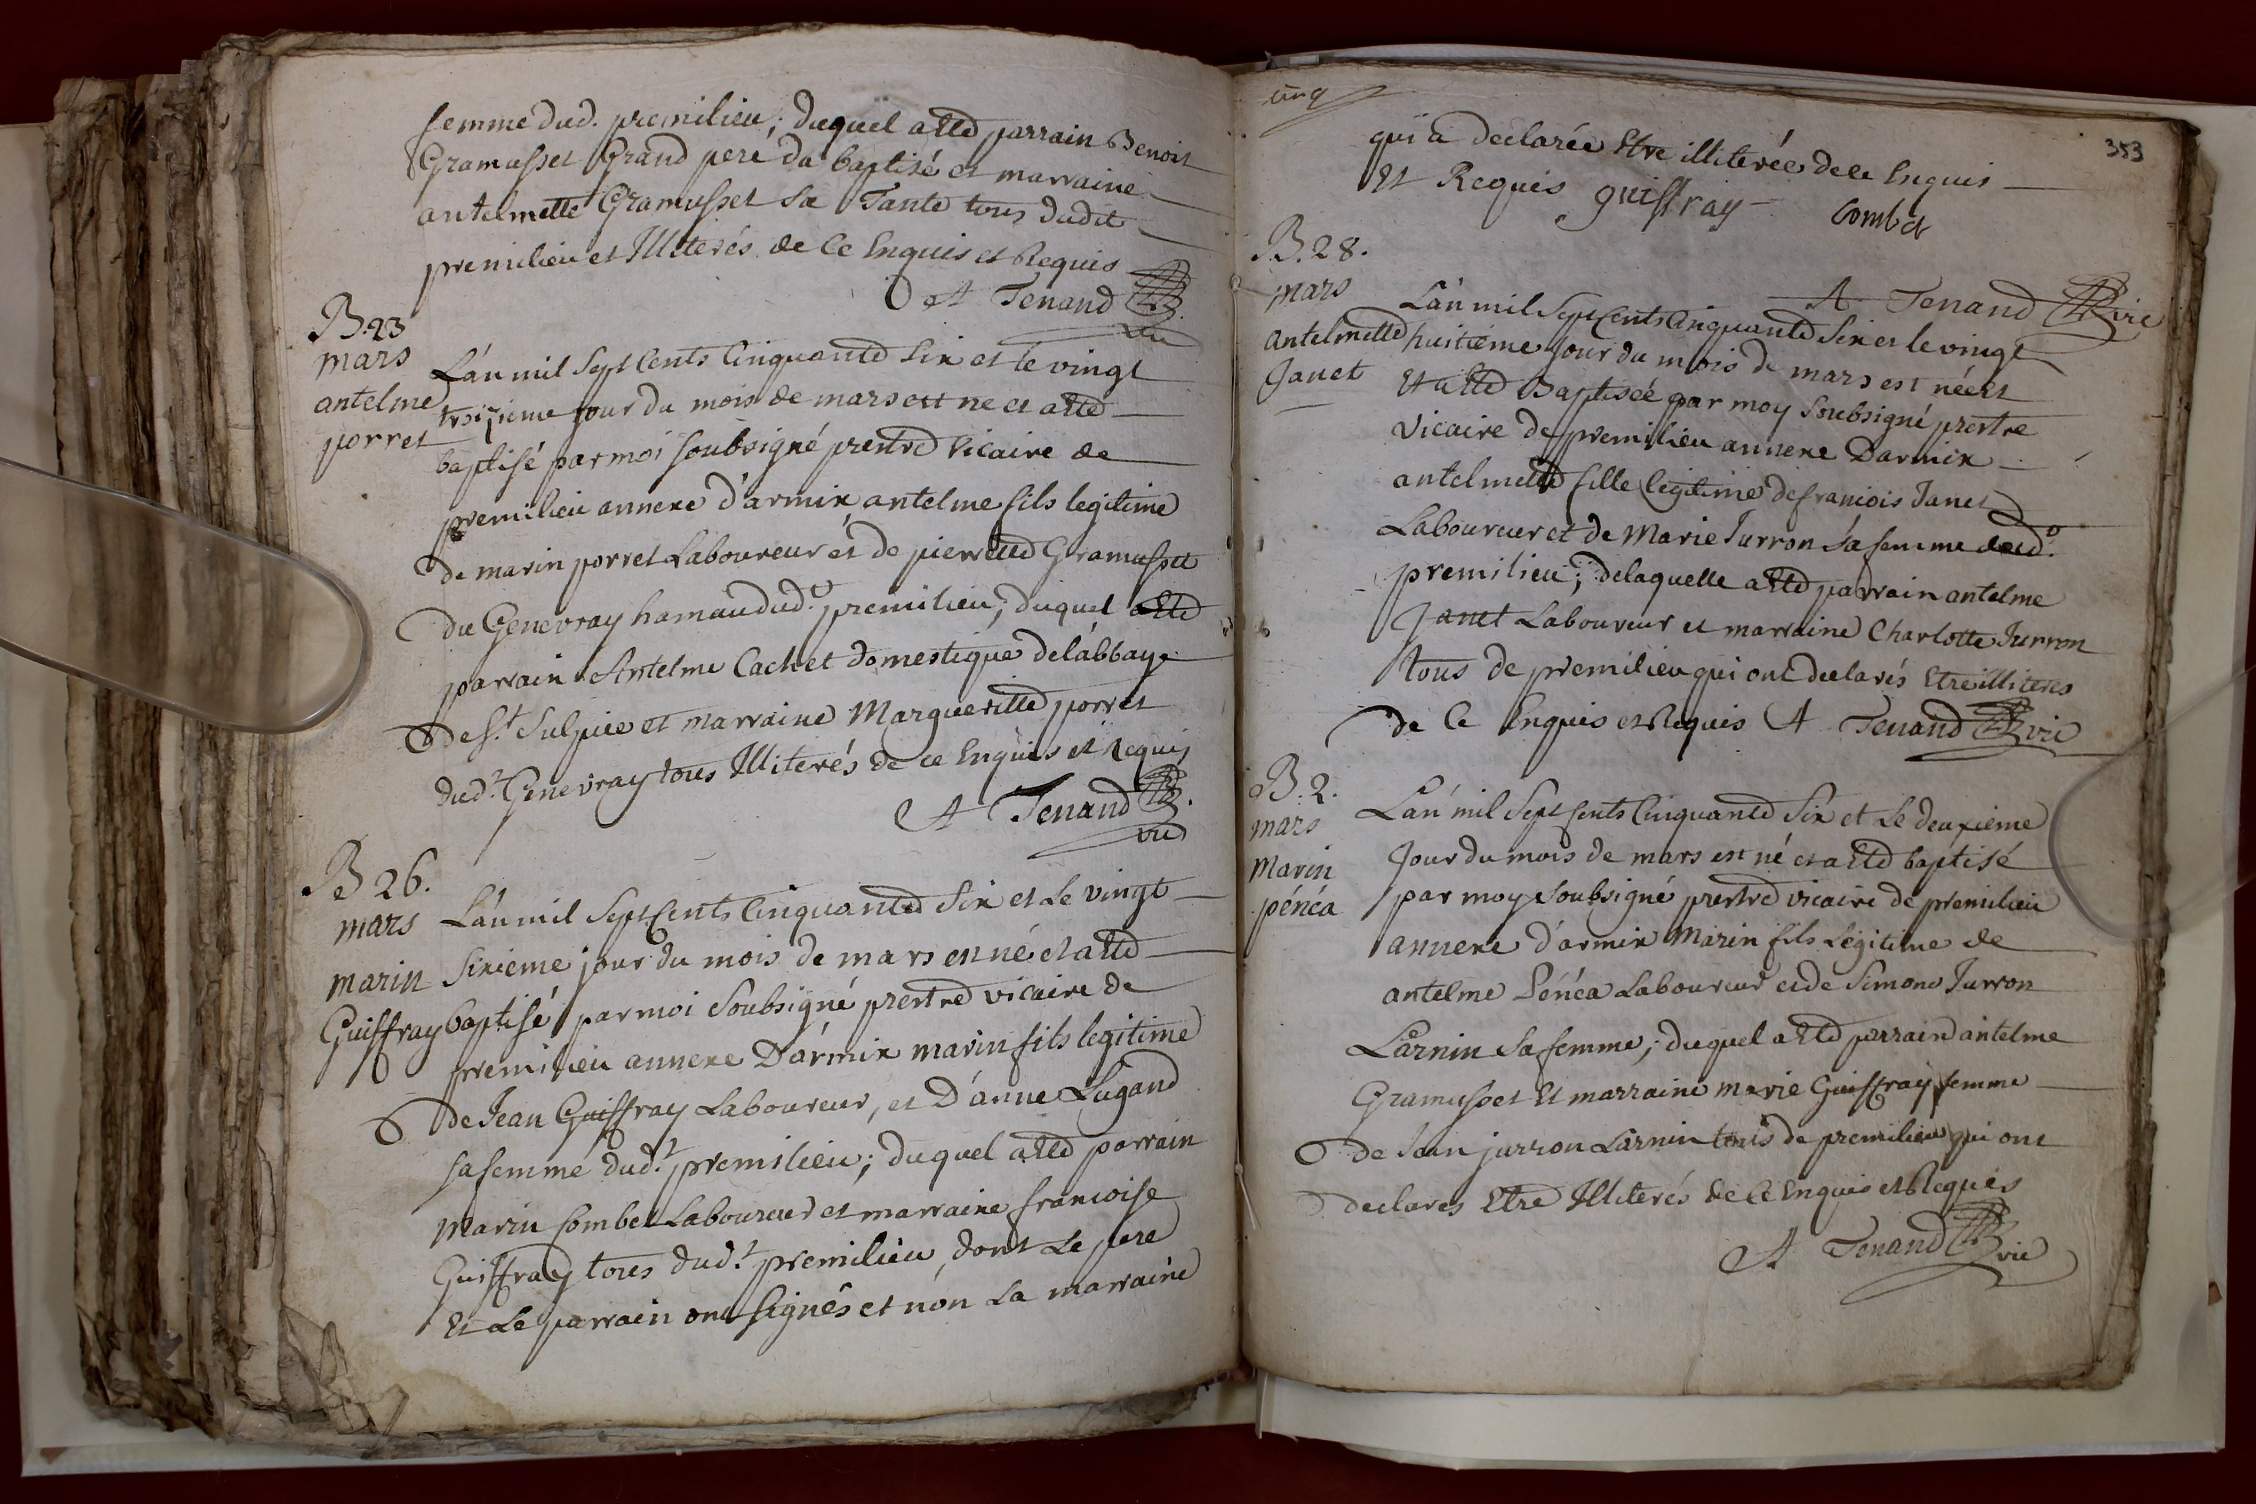 femme dud. premilieu; duquel a Eté parrain Benoit
Gramusset Grand pere du baptisé et marraine
antelmette Gramusset sa Tante tous dudit
premilieu et Illiterés de Ce Enquis et Requis
A Tenand
vic
B. 23
mars
antelme
porret
L'an mil sept Cents Cinquante Six et le vingt
troizieme jour du mois de mars est né et a eté
baptisé par moi soubsigné prestre vicaire de
premilieu annexe d'armix antelme fils legitime
de marin porret Laboureur et de pierrette Gramusset
du Genevray hamau dud.t premilieu; duquel a Eté
parrain Antelme Cachet domestique de l'abbaye
de S.t Sulpice et marraine Margueritte porret
dud.t Genevray tous Illiterés de ce Enquis et Requis
A Tenand
vic
B 26.
mars
marin
Guiffray
L'an mil Sept Cents Cinquante Six et Le vingt
Sixieme jour du mois de mars est né et a eté
baptisé par moi Soubsigné prestre vicaire de
premilieu annexe D'armix marin fils legitime
de Jean Guiffray Laboureur, et D'anne Lugand
sa femme dud.t premilieu; duquel a eté parrain
Marin Combet Laboureur et marraine francoise
Guiffray tous dud.t premilieu, dont Le pere
Et Le parrain ont signés et non La marraine
cinq
353
qui a declarée Etre illiterée de ce Enquis
Et Requis guiffray Combet
A Tenand vic
B. 28.
mars
antelmette
Janet
L'an mil Sept Cents Cinquante Six et le vingt
huitieme jour du mois de mars est née Et
Et a Eté Baptisée par moy Soubsigné prestre
Vicaire de premilieu annexe Darmix
antelmette fille legitime de francois Janet
Laboureur et de Marie Jurron sa femme dud.
premilieu; de laquelle a Eté parrain antelme
Janet Laboureur et marraine Charlotte Jurron
tous de premilieu qui ont declarés Etre illiteres
de Ce Enquis et Requis A Tenand vic
B. 2.
mars
Marin
pénéa
L'an mil Sept Cents Cinquante Six et Le deuxieme
Jour du mois de mars est né et a Eté baptisé
par moy Soubsigné prestre vicaire de premilieu
annexe d'armix Marin fils Légitime de
antelme Pénéa Laboureur et de Simone Jurron
Larnin Sa femme; duquel a Eté parrain antelme
Gramusset Et marraine marie Guiffray femme
de Jean jurron Larnin tous de premilieu qui ont
declares Etre Illiterés de Ce Enquis et Requis
A Tenand vic